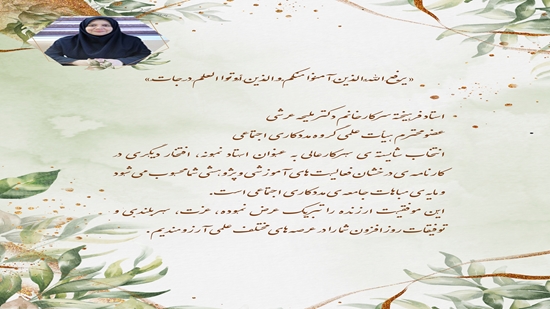 «يرفع الله الذين آمنوا منكم و الذين أوتوا العلم درجات»
استاد فرهیخته سرکار خانم دکتر ملیحه عرشی
عضو محترم هیات علمی گروه مددکاری اجتماعی
انتخاب شایسته ی سرکارعالی به عنوان استاد نمونه، افتخار دیگری در
کارنامه ی درخشان فعالیت های آموزشی و پژوهشی شما محسوب می شود
و مایه ی مباهات جامعه ی مددکاری اجتماعی است.
این موفقیت ارزنده را تبریک عرض نموده، عزت، سربلندی و
توفیقات روزافزون شما را در عرصه های مختلف علمی آرزومندیم.